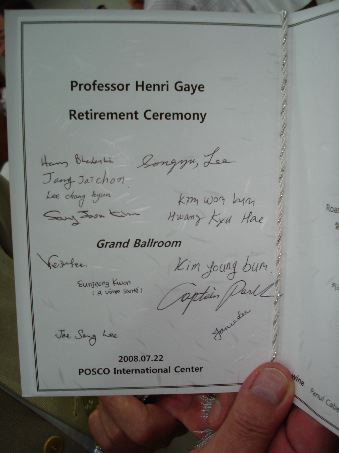 Professor Henri Gaye
Retirement Ceremony
Songyu, Lee
Jang Jaichon
Lee chang hyun
Kim Won bum
Sang Joon Kim
Hwang Kyu Hae
Grand Ballroom
Kim Joung bum
Eunjeong Kwon
Captain Park
Jae Sang Lee
2008.07.22
POSCO International Center
wine